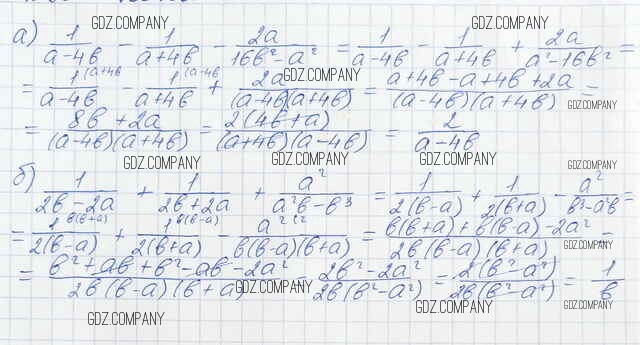 GDZ.COMPANY GDZ.COMPANY
а) 1/(a-4b) - 1/(a+4b) - 2a/(16b²-a²) = 1/(a-4b) - 1/(a+4b) + 2a/(a²-16b²) =
GDZ.COMPANY
= 1^(a+4b/(a-4b) - 1^(a-4b/(a+4b) + 2a/((a-4b)(a+4b)) = (a+4b-a+4b+2a)/((a-4b)(a+4b)) =
GDZ.COMPANY
= (8b+2a)/((a-4b)(a+4b)) = 2(4b+a)/((a+4b)(a-4b)) = 2/(a-4b)
GDZ.COMPANY GDZ.COMPANY GDZ.COMPANY GDZ.COMPANY
б) 1/(2b-2a) + 1/(2b+2a) + a²/(a²b-b³) = 1/(2(b-a)) + 1/(2(b+a)) - a²/(b³-a²b) =
= 1^b(b+a)/(2(b-a)) + 1^b(b-a)/(2(b+a)) - a²^(2/(b(b-a)(b+a)) = (b(b+a)+b(b-a)-2a²)/(2b(b-a)(b+a)) =
GDZ.COMPANY
= (b²+ab+b²-ab-2a²)/(2b(b-a)(b+a)) = (2b²-2a²)/(2b(b²-a²)) = 2(b²-a²)/(2b(b²-a²)) = 1/b
GDZ.COMPANY
GDZ.COMPANY GDZ.COMPANY GDZ.COMPANY